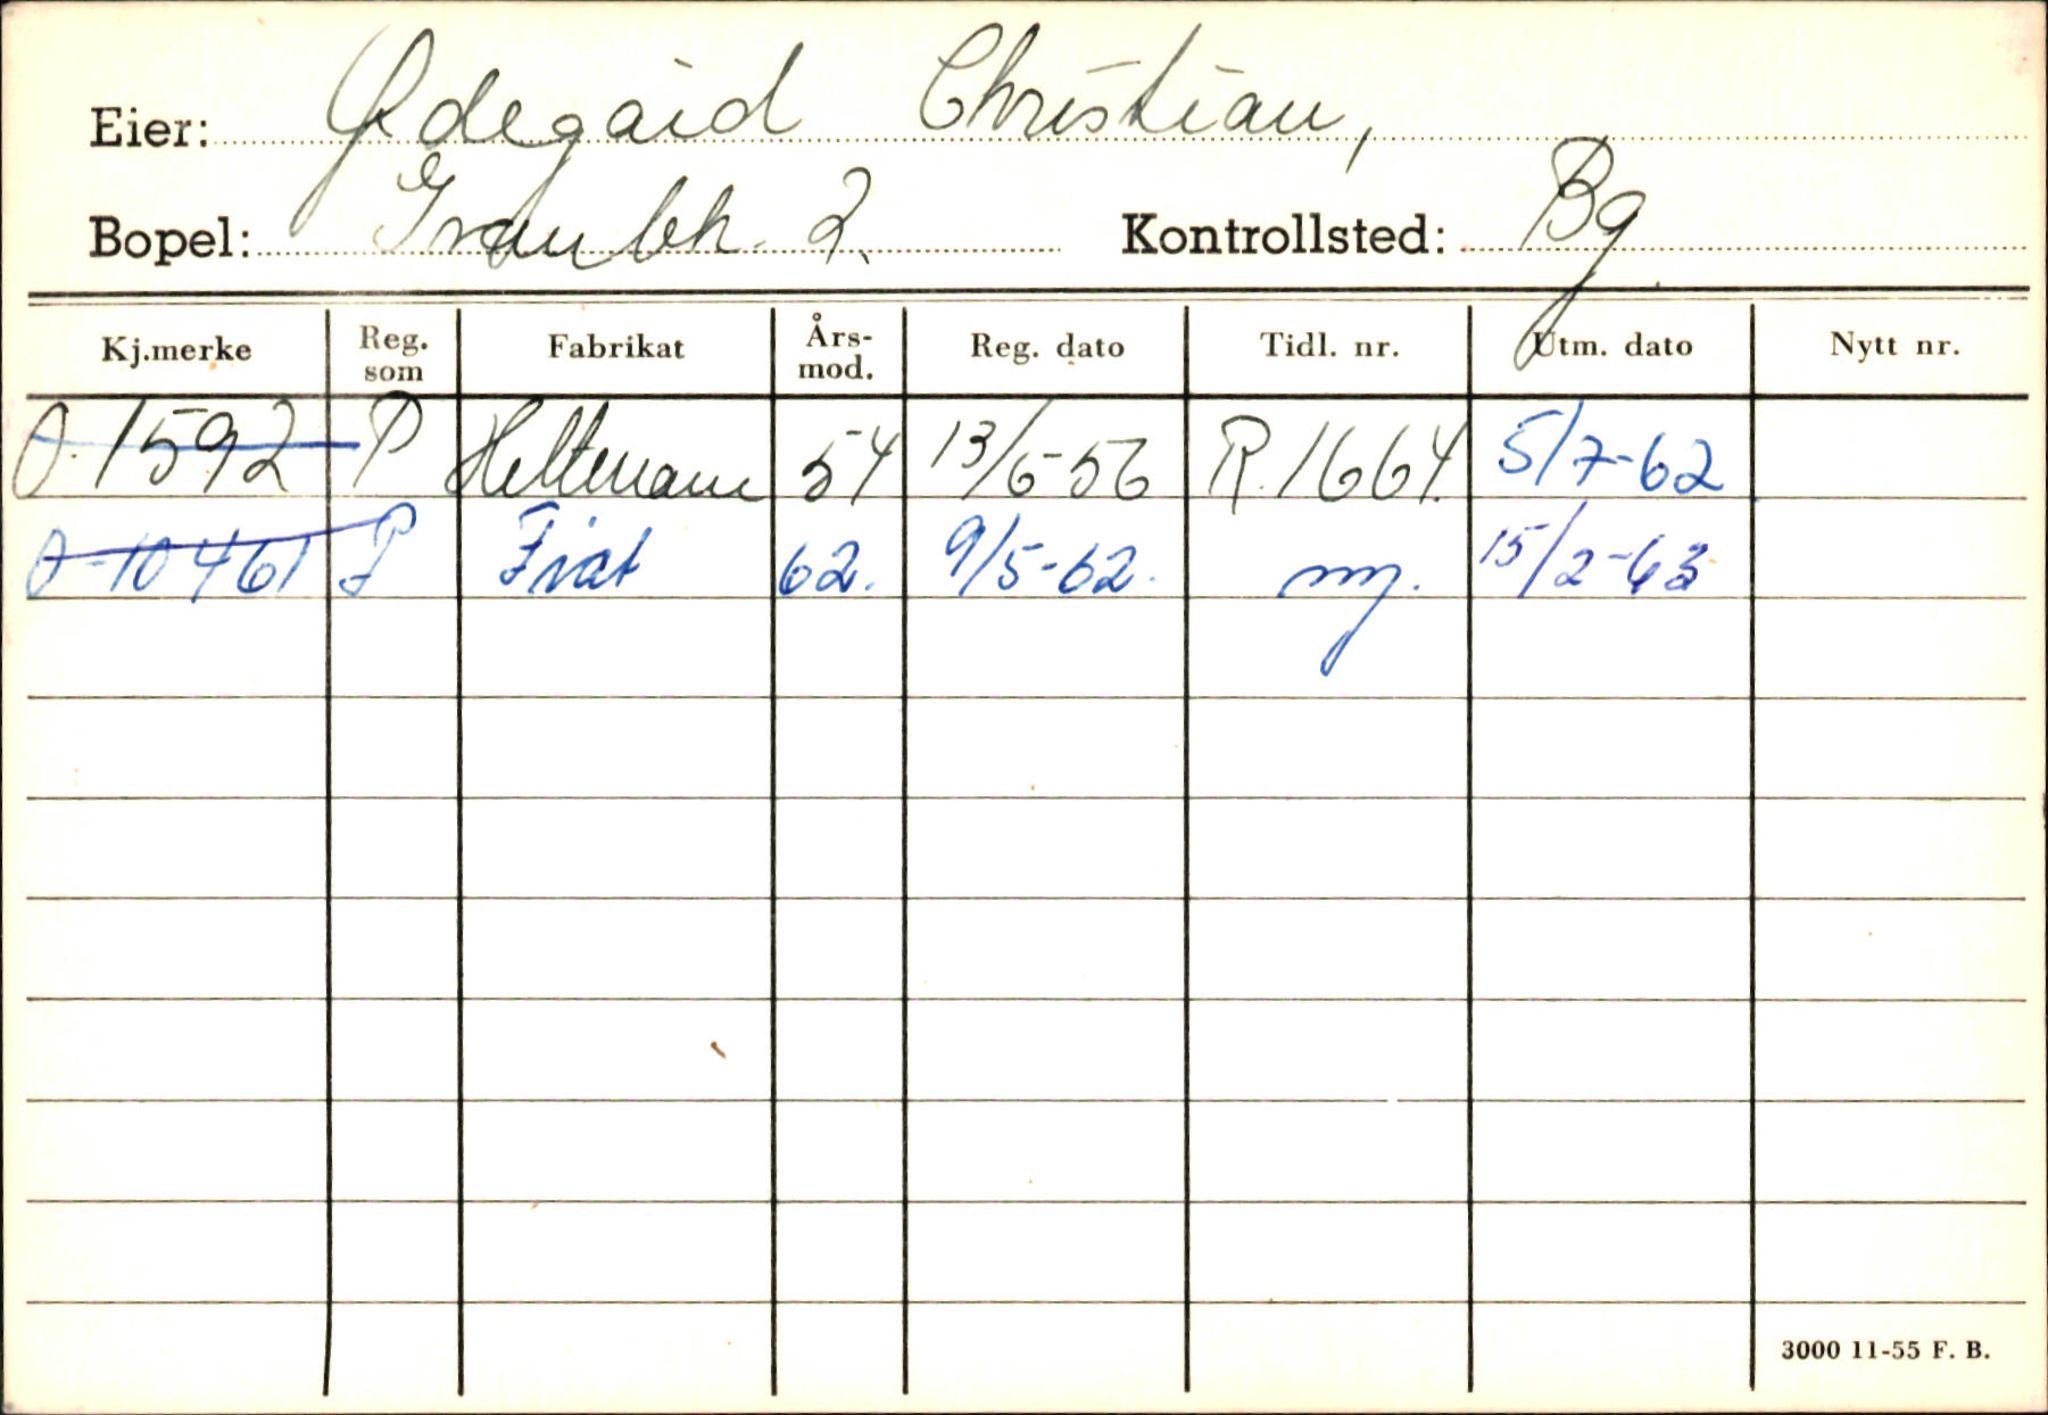 Eier: Ødegård Christian,
Bopel: Graubk. 2. Kontrollsted: Bg
Kj.merke Reg. som Fabrikat Års-mod. Reg. dato Tidl. nr. Utm. dato Nytt nr.
O-1592 P 54 13/6-56 R.1664. 5/7-62
O-10461 P Fiat 62. 9/5-62. ny. 15/2-63
3000 11-55 F. B.